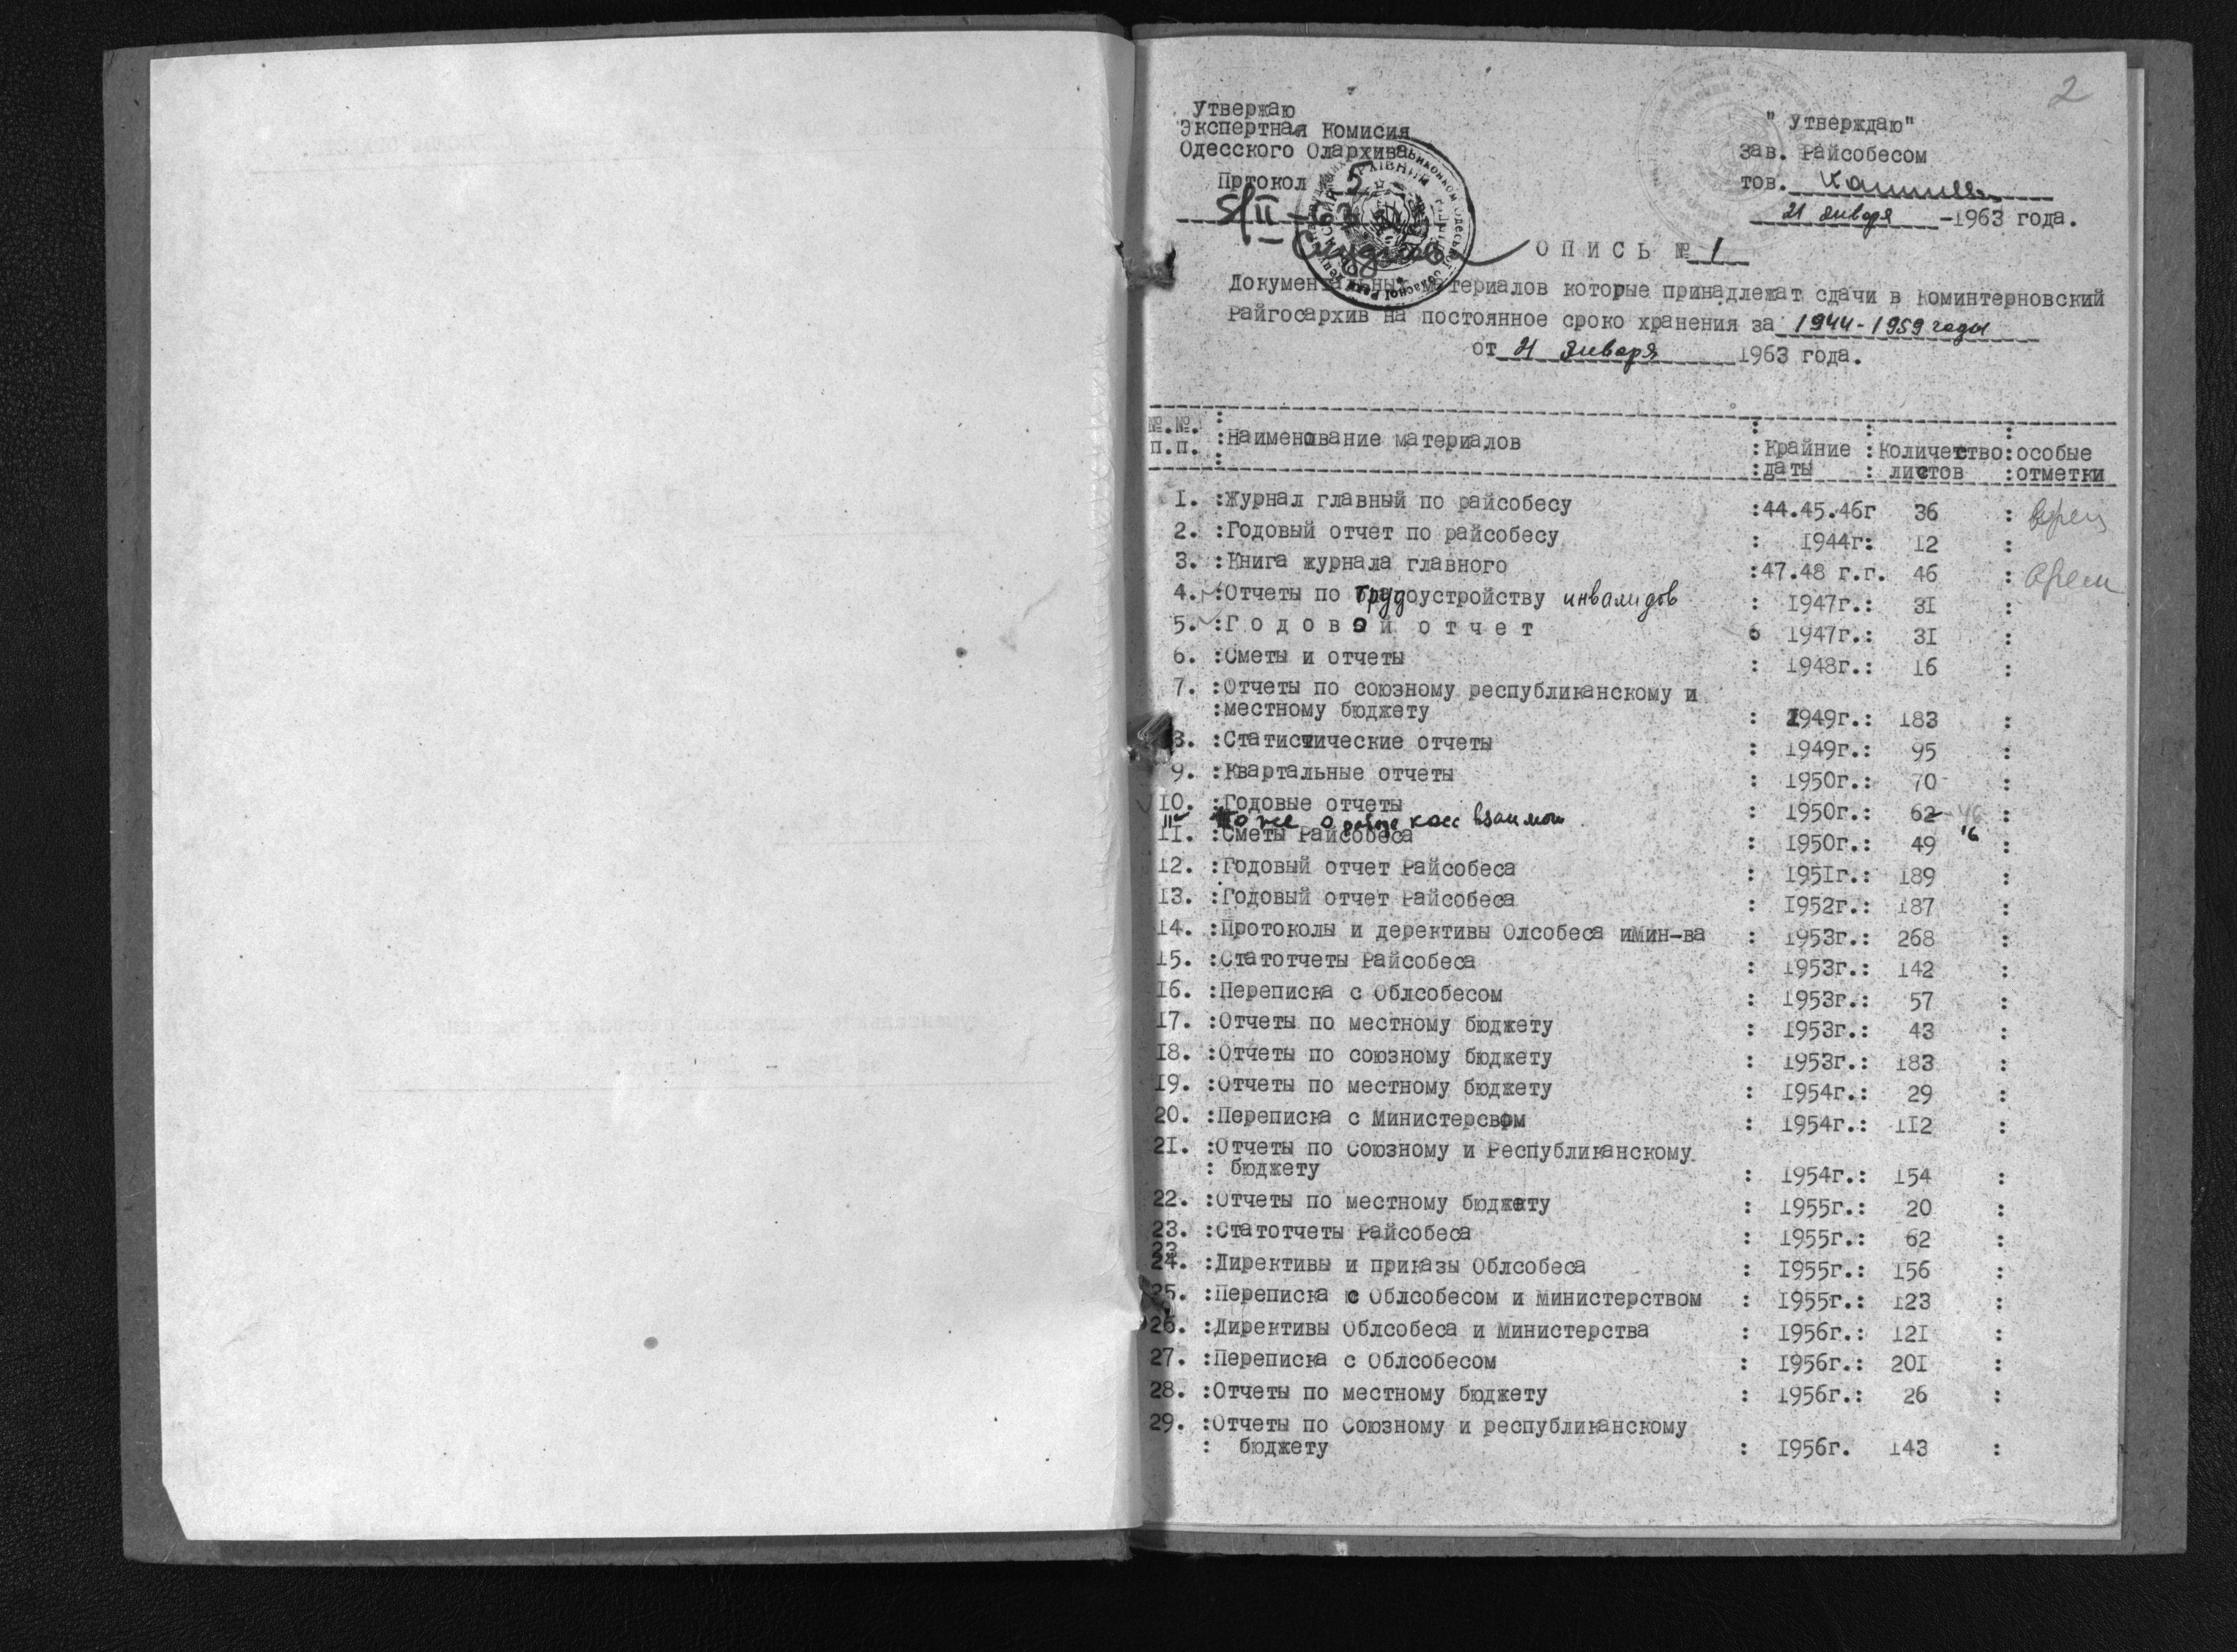 2
Утвержаю
Экспертная Комисия
Одесского Олархива
Пртокол 5
5/II-63
" Утверждаю"
Зав. Райсобесом
тов.
21 января -1963 года.
ОПИСЬ № 1
Документальных материалов которые принадлежат сдачи в Коминтерновский
Райгосархив на постоянное сроко хранения за 1944-1959 годы
от 21 января 1963 года.
№.№. п.п. :Наименование материалов :Крайние даты :Количество листов :особые отметки
1. :Журнал главный по райсобесу :44.45.46г 36 :
2. :Годовый отчет по райсобесу : 1944г: 12 :
3. :Книга журнала главного :47.48 г.г. 46 : врем
4. :Отчеты по трудоустройству инвалидов : 1947г.: 31 :
5. :Годовой отчет 6 1947г.: 31 :
6. :Сметы и отчеты : 1948г.: 16 :
7. :Отчеты по союзному республиканскому и
:местному бюджету : 1949г.: 183 :
8. :Статистические отчеты : 1949г.: 95 :
9. :Квартальные отчеты : 1950г.: 70 :
10. :Годовые отчеты : 1950г.: 62 - 46 :
11а То же о работе касс взаимоп 16
11. :Сметы Райсобеса : 1950г.: 49 :
12. :Годовый отчет Райсобеса : 1951г.: 189 :
13. :Годовый отчет Райсобеса : 1952г.: 187 :
14. :Протоколы и дерективы Олсобеса имин-ва : 1953г.: 268 :
15. :Статотчеты Райсобеса : 1953г.: 142 :
16. :Переписка с Облсобесом : 1953г.: 57 :
17. :Отчеты по местному бюджету : 1953г.: 43 :
18. :Отчеты по союзному бюджету : 1953г.: 183 :
19. :Отчеты по местному бюджету : 1954г.: 29 :
20. :Переписка с Министерсвом : 1954г.: 112 :
21. :Отчеты по Союзному и Республиканскому
: бюджету : 1954г.: 154 :
22. :Отчеты по местному бюджету : 1955г.: 20 :
23. :Статотчеты Райсобеса : 1955г.: 62 :
23
24. :Директивы и приказы Облсобеса : 1955г.: 156 :
25. :Переписка с Облсобесом и Министерством : 1955г.: 123 :
26. :Директивы Облсобеса и Министерства : 1956г.: 121 :
27. :Переписка с Облсобесом : 1956г.: 201 :
28. :Отчеты по местному бюджету : 1956г.: 26 :
29. :Отчеты по Союзному и республиканскому
: бюджету : 1956г. 143 :